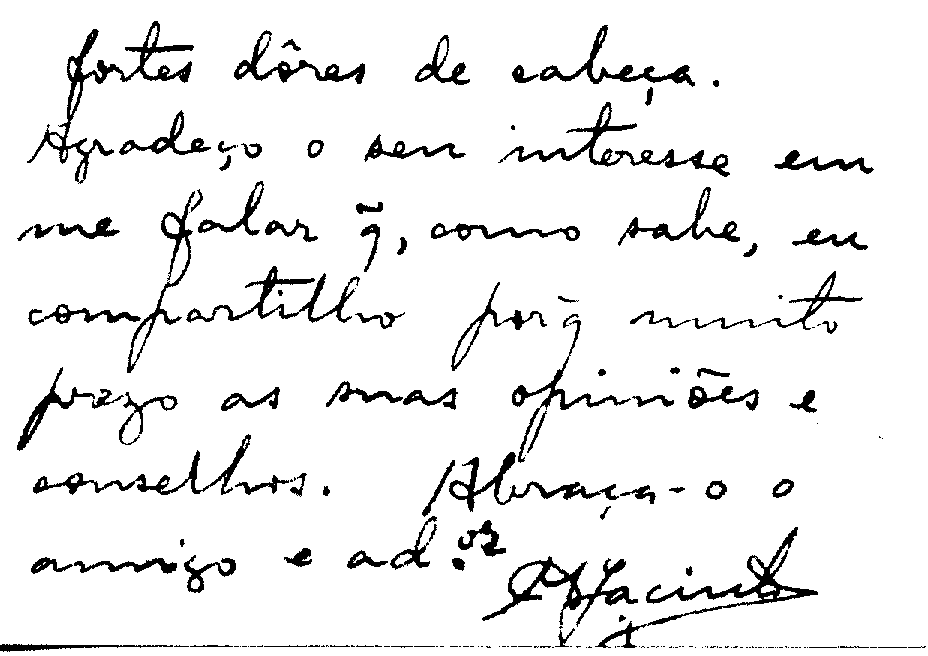 fortes dôres de cabeça.
Agradeço o seu interesse em
me falar q̃, como sabe, eu
compartilho porq̃ muito
prezo as suas opiniões e
conselhos. Abraça-o o
amigo e ad.ᵒʳ
Jacinto